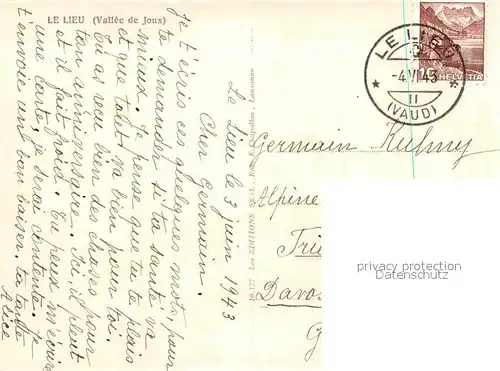 LE LIEU (Vallée de Joux)
Le Lieu le 3 juin 1943
Cher Germain.
Je t'écris ces quelques mots, pour
te demander si ta santé va
mieux. Je pense que tu te plais
et que tout va bien pour toi.
Tu as reçu bien des choses pour
ton anniversaire. Ici, il pleut
et il fait froid. Tu peux m'écrire
une carte, je serai contente. Je
t'envoie un bon baiser. ta tante
Alice
Les EDITIONS
Lausanne
LE LIEU
-4.VI.43
II
(VAUD)
HELVETIA
Germain
Alpine
Davos
privacy protection
Datenschutz